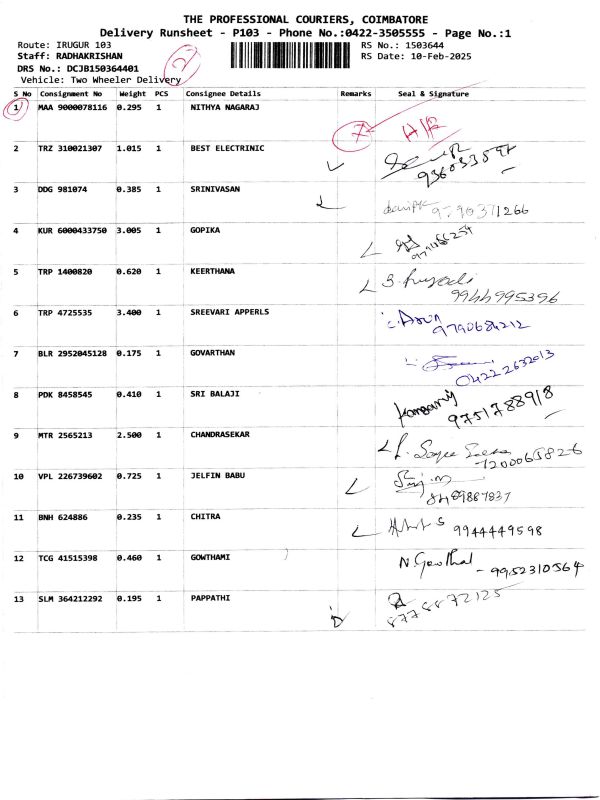 THE PROFESSIONAL COURIERS, COIMBATORE
Delivery Runsheet - P103 - Phone No.:0422-3505555 - Page No.:1
Route: IRUGUR 103 RS No.: 1503644
Staff: RADHAKRISHAN RS Date: 10-Feb-2025
DRS No.: DCJB150364401
Vehicle: Two Wheeler Delivery
S No Consignment No Weight PCS Consignee Details Remarks Seal & Signature
1 MAA 9000078116 0.295 1 NITHYA NAGARAJ
2 TRZ 310021307 1.015 1 BEST ELECTRINIC
3 DDG 981074 0.385 1 SRINIVASAN
4 KUR 6000433750 3.005 1 GOPIKA
5 TRP 1400820 0.620 1 KEERTHANA
9944995396
6 TRP 4725535 3.400 1 SREEVARI APPERLS
Arun
9790684212
7 BLR 2952045128 0.175 1 GOVARTHAN
04222632013
8 PDK 8458545 0.410 1 SRI BALAJI
9751788918
9 MTR 2565213 2.500 1 CHANDRASEKAR
7200065826
10 VPL 226739602 0.725 1 JELFIN BABU
8489887837
11 BNH 624886 0.235 1 CHITRA
9944449598
12 TCG 41515398 0.460 1 GOWTHAMI
N. Gowthal - 9952310564
13 SLM 364212292 0.195 1 PAPPATHI
8778872125